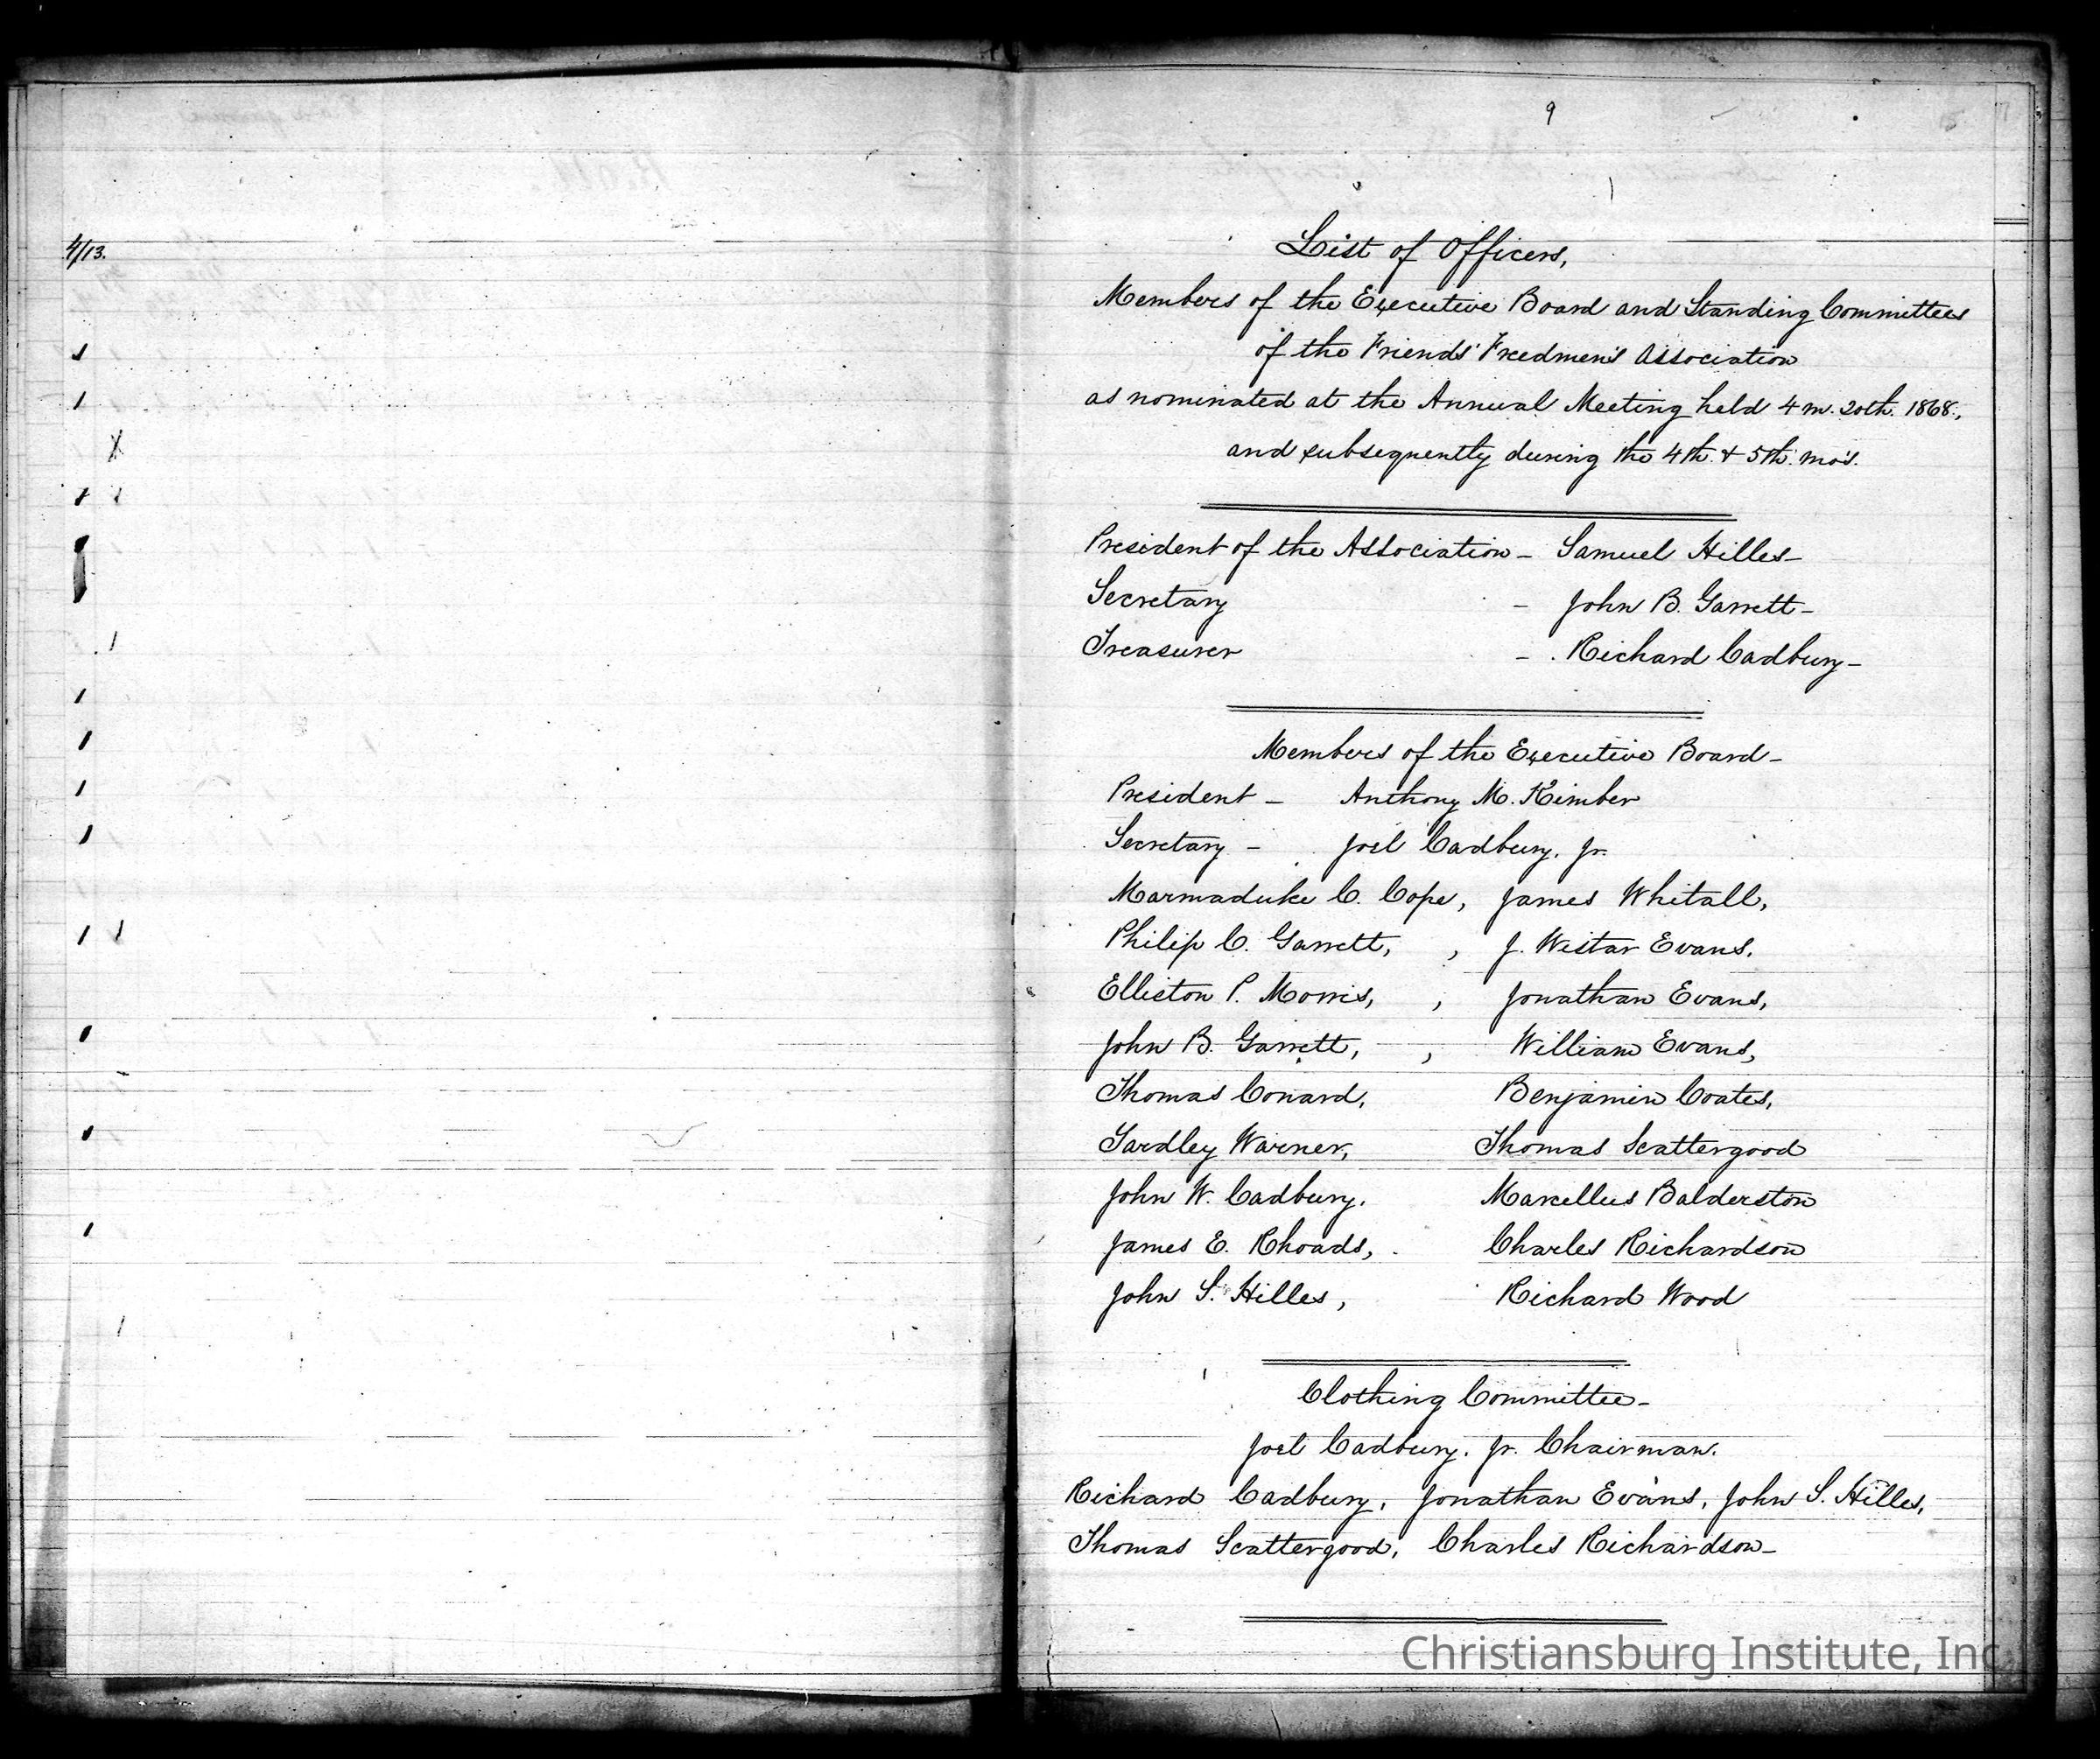 9
4/13.
List of Officers,
Members of the Executive Board and Standing Committees
of the Friends' Freedmen's Association
as nominated at the Annual Meeting held 4 m. 20th. 1868.,
and subsequently during the 4th. & 5th. mo's.
President of the Association - Samuel Hilles -
Secretary - John B. Garrett -
Treasurer - Richard Cadbury -
Members of the Executive Board -
President - Anthony M. Kimber
Secretary - Joel Cadbury. Jr.
Marmaduke C. Cope, James Whitall,
Philip C. Garrett, , J. Wistar Evans.
Elliston P. Morris, , Jonathan Evans,
John B. Garrett, , William Evans,
Thomas Conard, Benjamin Coates,
Yardley Warner, Thomas Scattergood
John W. Cadbury. Marcellus Balderston
James E. Rhoads, Charles Richardson
John S. Hilles, Richard Wood
Clothing Committee -
Joel Cadbury. Jr. Chairman.
Richard Cadbury, Jonathan Evans, John S. Hilles,
Thomas Scattergood, Charles Richardson -
Christiansburg Institute, Inc.